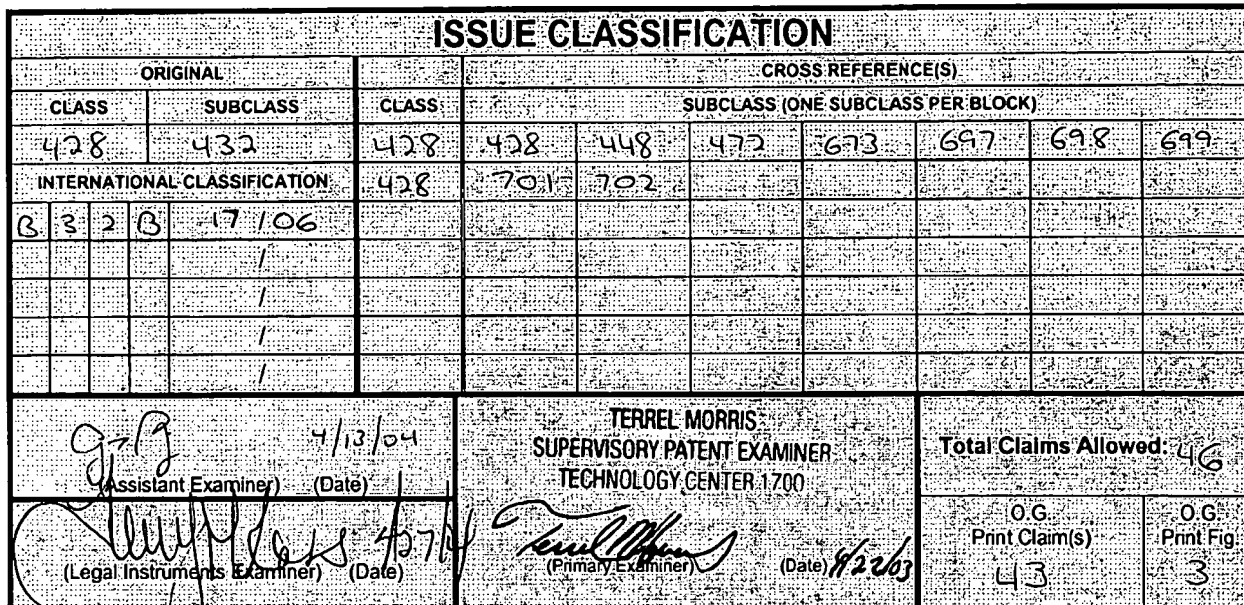 ISSUE CLASSIFICATION
ORIGINAL CROSS REFERENCE(S)
CLASS SUBCLASS CLASS SUBCLASS (ONE SUBCLASS PER BLOCK)
428 432 428 428 448 472 673 697 698 699
INTERNATIONAL CLASSIFICATION 428 701 702
B 3 2 B 17 / 06
/
/
/
/
4/13/04
(Assistant Examiner) (Date)
(Legal Instruments Examiner) (Date)
TERREL MORRIS
SUPERVISORY PATENT EXAMINER
TECHNOLOGY CENTER 1700
(Primary Examiner) (Date) 4/22/03
Total Claims Allowed: 46
O.G. Print Claim(s)
43
O.G. Print Fig.
3